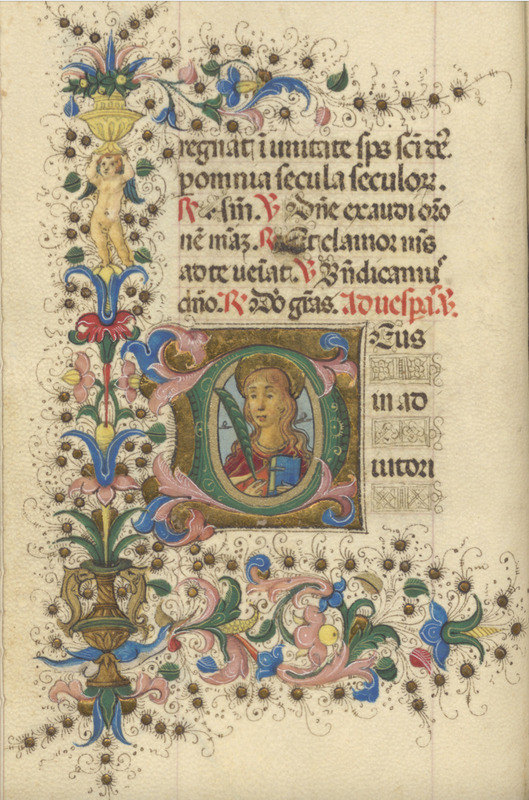 regnat ĩ unitate sp̃s sc̃i dẽ.
p omnia secula seculoꝝ.
℟ Am̃. ℣ Dñe exaudi or̃o
nẽ meã. ℟ Et clamor m̃s
ad te ueĩat. ℣ Bñdicamus
dño. ℟ Dõ gr̃as. Ad uesp̃ꝝ. ℣.
DEus
in ad
iutori